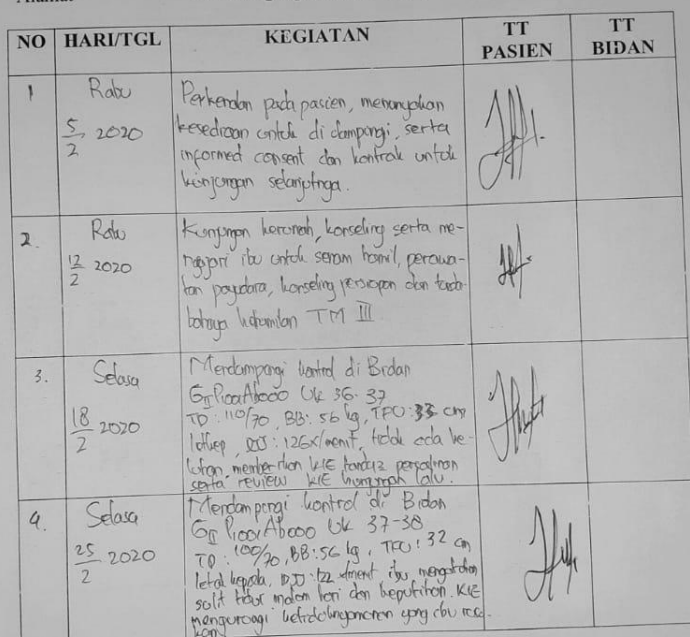 NO HARI/TGL KEGIATAN TT PASIEN TT BIDAN
1 Rabu 5/2 2020
Perkenalan pada pasien, menanyakan
kesediaan untuk di dampingi, serta
informed consent dan kontrak untuk
kunjungan selanjutnya.
2. Rabu 12/2 2020
Kunjungan kerumah, konseling serta me-
ngajari ibu untuk senam hamil, perawa-
tan payudara, konseling persiapan dan tanda
bahaya kehamilan TM III
3. Selasa 18/2 2020
Mendampingi kontrol di Bidan
GII P1001Ab000 UK 36-37
TD: 110/70, BB: 56 kg, TFU: 33 cm
letkep, DJJ: 126x/menit, tidak ada ke-
luhan memberikan KIE tanda2 persalinan
serta review KIE kunjungan lalu.
4. Selasa 25/2 2020
Mendampingi kontrol di Bidan
GII P1001Ab000 UK 37-38
TD: 100/70, BB: 56 kg, TFU: 32 cm
letak kepala, DJJ: 122 x/menit ibu mengatakan
sulit tidur malam hari dan keputihan. KIE
mengurangi ketidaknyamanan yang ibu rasa-
kan